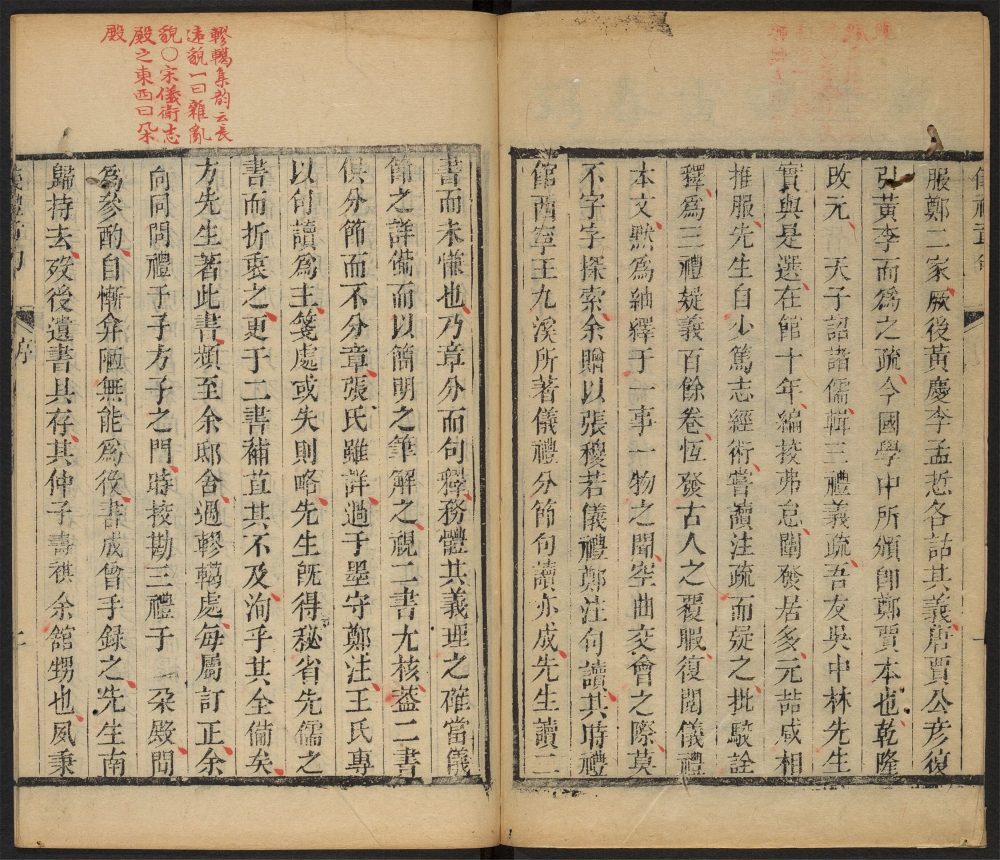 服鄭二家厥後黃慶李孟悊各詁其義唐賈公彦復
引黃李而爲之疏今國學中所頒卽鄭賈本也乾隆
改元 天子詔諸儒輯三禮義疏吾友吳中林先生
實與是選在館十年編校弗怠闡發居多元喆咸相
推服先生自少篤志經術嘗讀注疏而疑之批駁詮
釋爲三禮疑義百餘卷恆發古人之覆暇復閱儀禮
本文默爲紬釋于一事一物之閒空曲交會之際莫
不字字探索余贈以張稷若儀禮鄭注句讀其時禮
館西寧王九溪所著儀禮分節句讀亦成先生讀二
轇轕集韵云長
遠貌一曰雜亂
貌〇宋儀衛志
殿之東西曰朵
殿
書而未慊也乃章分而句釋務體其義理之確當儀
節之詳備而以簡明之筆解之視二書尤核葢二書
俱分節而不分章張氏雖詳過于墨守鄭注王氏專
以句讀爲主箋處或失則略先生旣得秘省先儒之
書而折衷之更于二書補苴其不及洵乎其全備矣
方先生著此書頻至余邸舍過轇轕處每屬訂正余
向同問禮于子方子之門時挍勘三禮于 朵殿間
爲參酌自慚弇陋無能爲役書成曾手録之先生南
歸持去歿後遺書具存其仲子壽祺余舘甥也夙秉
序